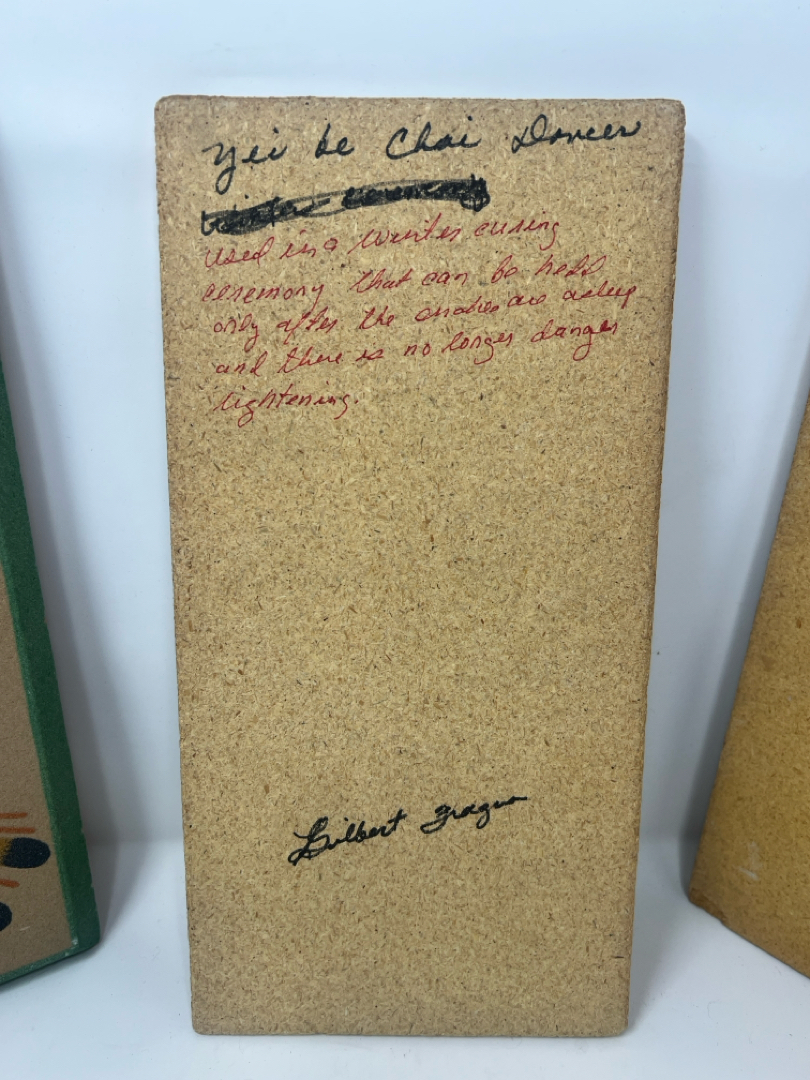 Yei be Chai Dancer
Winter ceremony
used in a Winter curing
ceremony that can be held
only after the snakes are asleep
and there is no longer danger
lightening.
Gilbert